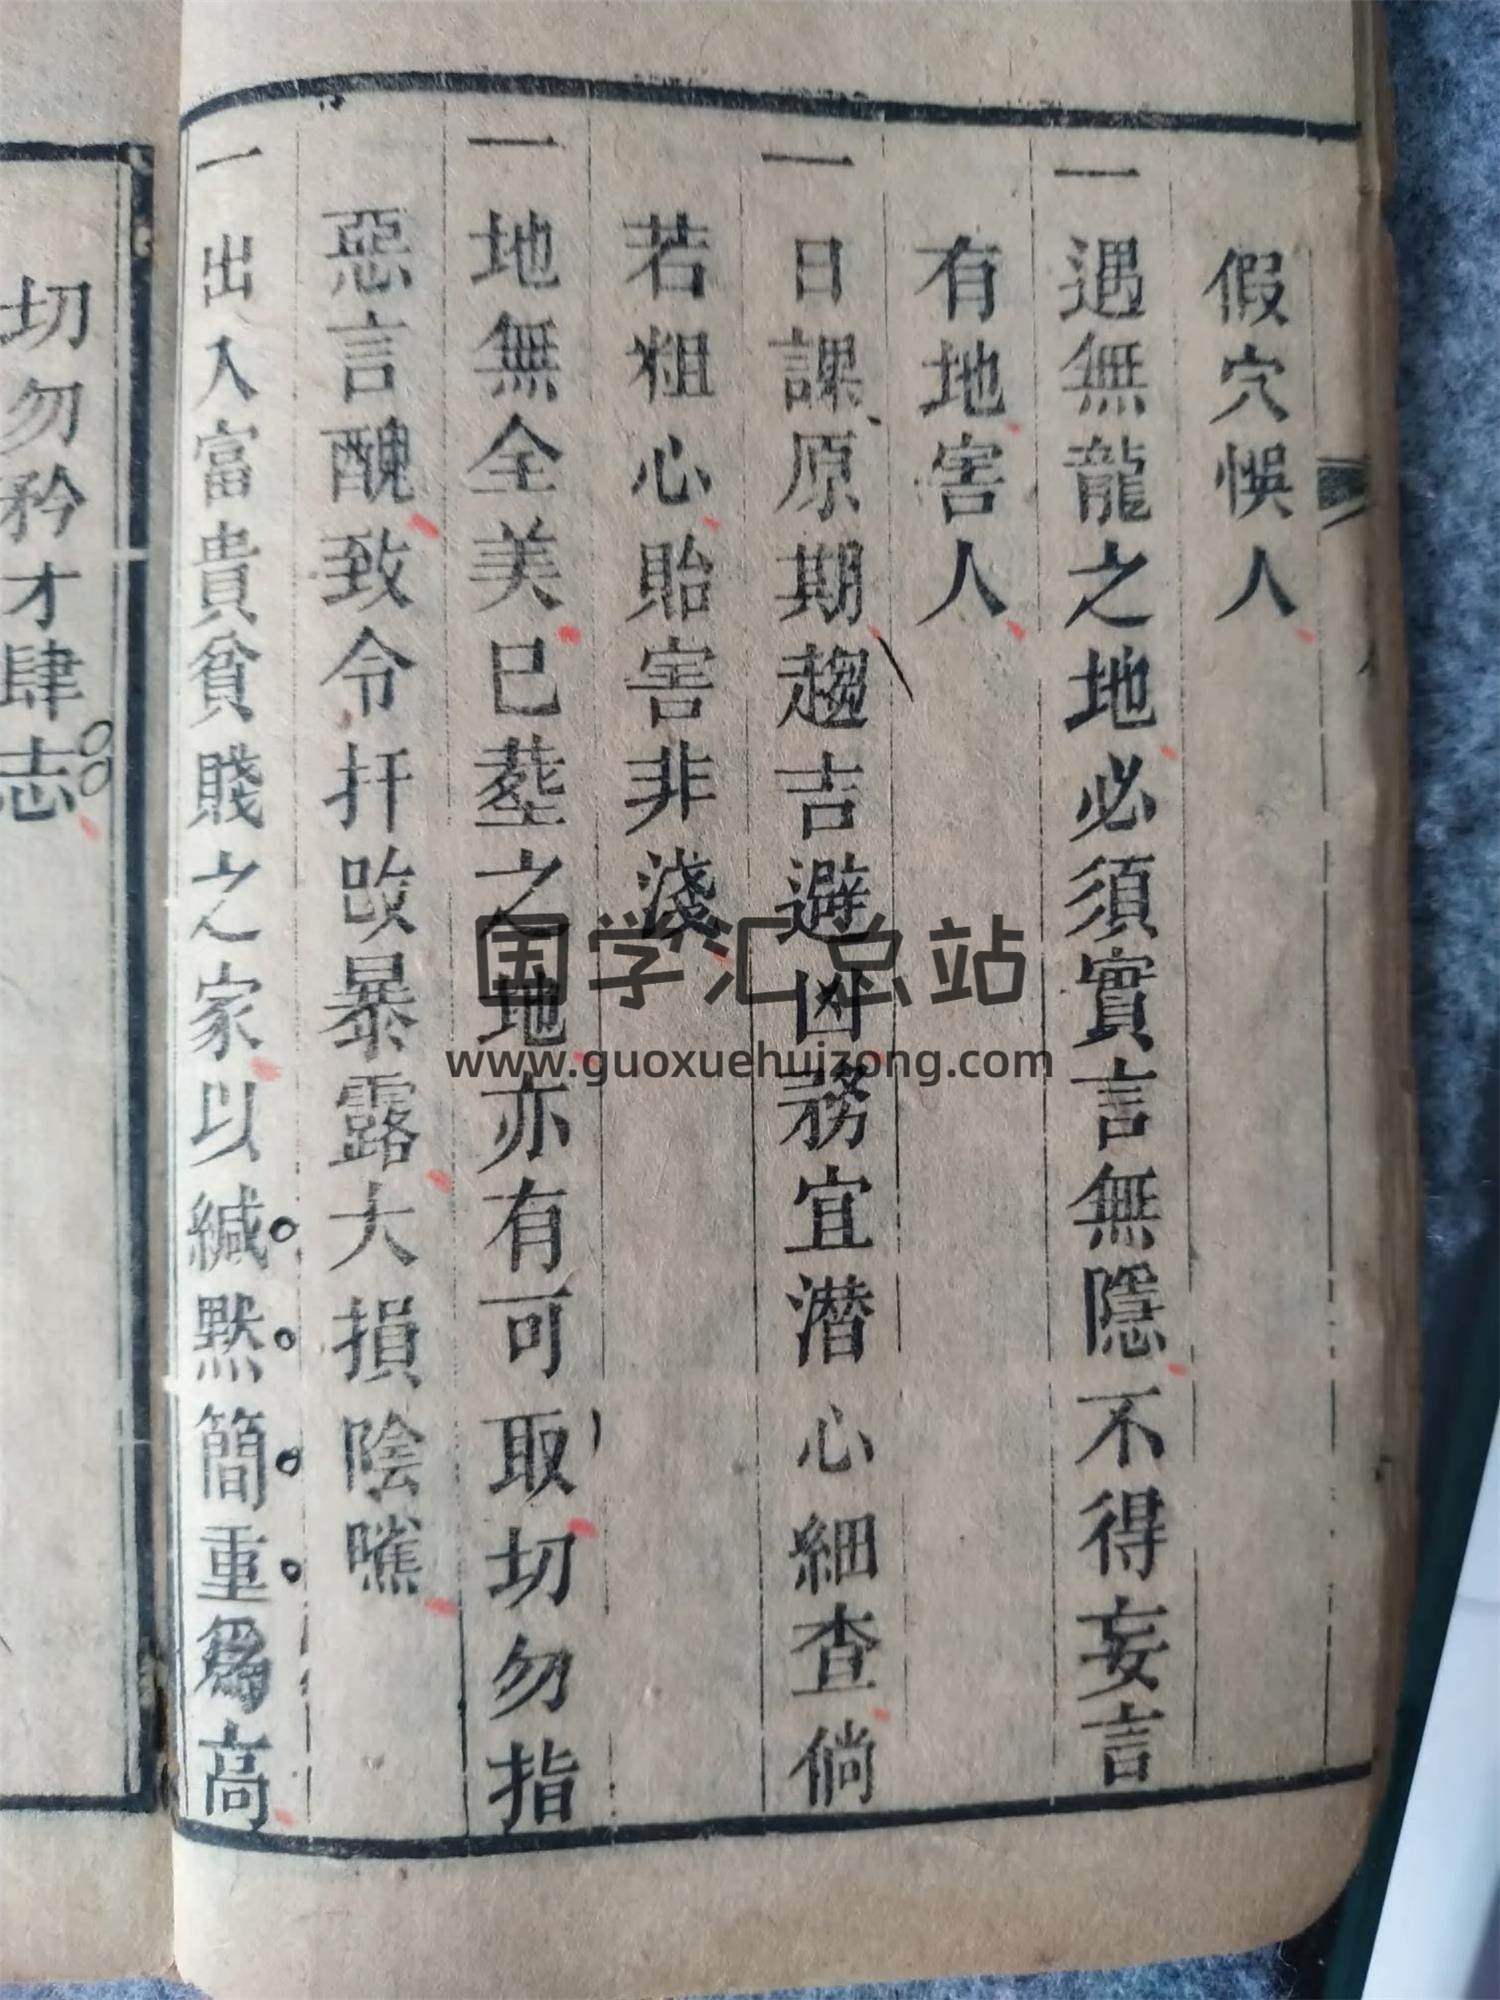 假穴悞人
一遇無龍之地必須實言無隱不得妄言
有地害人
一日課原期趨吉避凶務宜潛心細查倘
若粗心貽害非淺
一地無全美已塟之地亦有可取切勿指
惡言醜致令扦改暴露大損陰嘿
一出入富貴貧賤之家以緘默簡重爲高
切勿矜才肆志
国学汇总站
www.guoxuehuizong.com